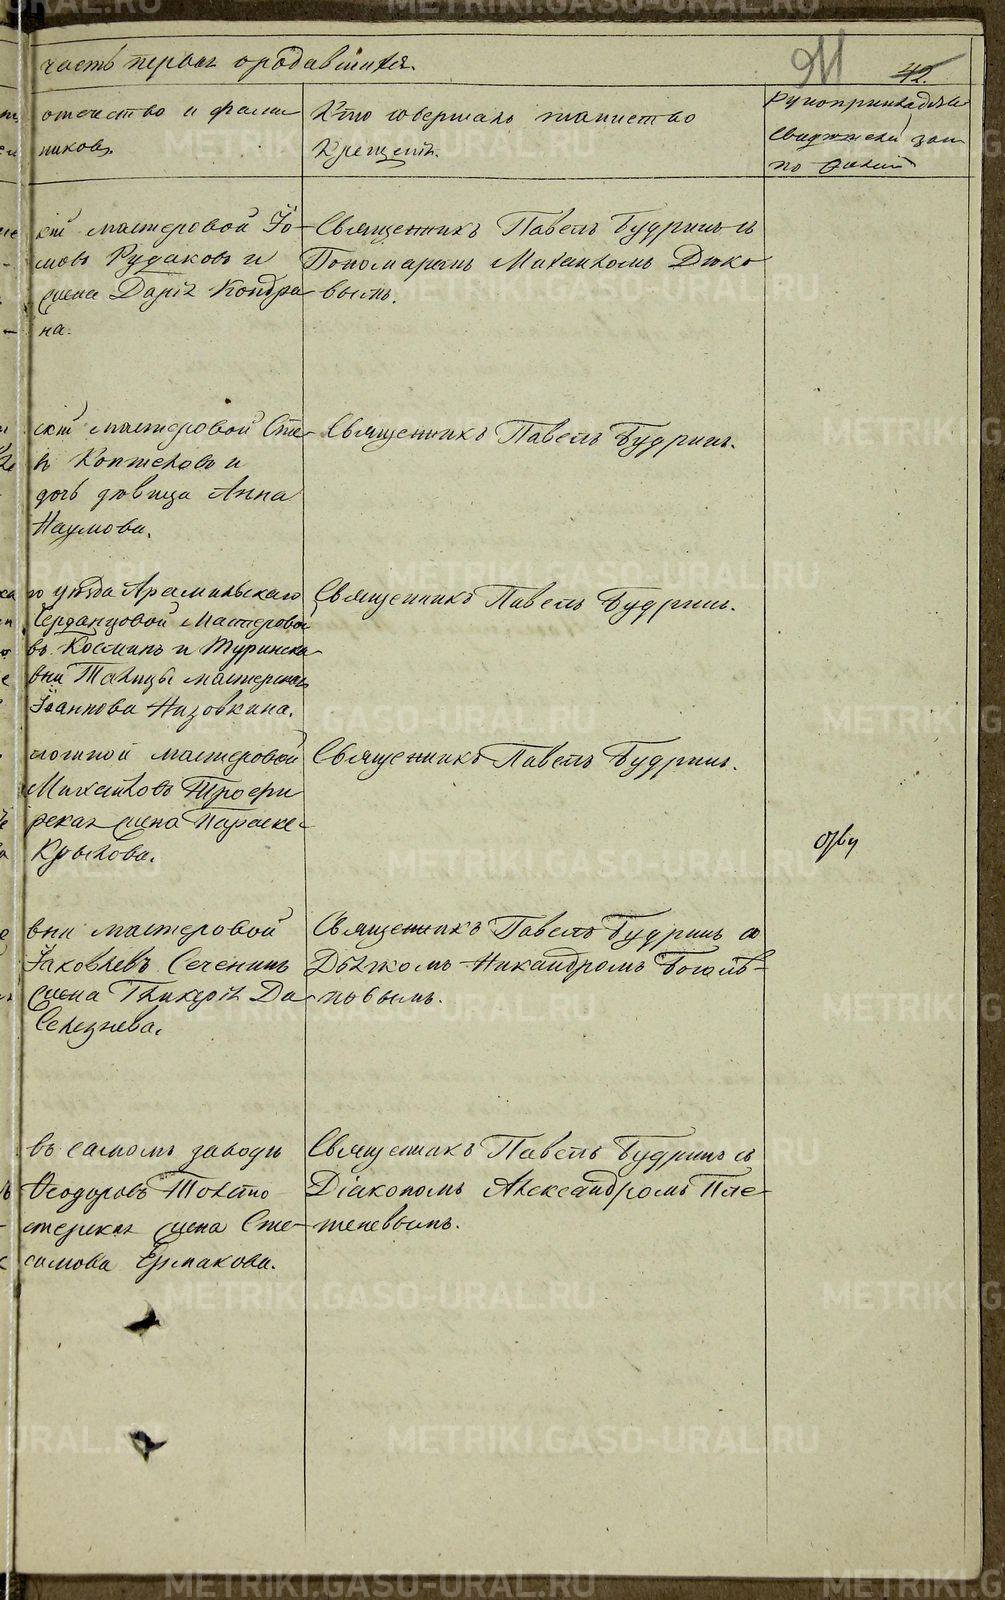 часть первая о родившихся.
42.
отчество и фами
никовъ.
Кто совершалъ таинство
крещенія.
Рукоприкладства
свидѣтелей
по
мастеровой Іо-
мовъ Рудаковъ и
жена Дарія Кондра
на.
Священникъ Павелъ Будринъ съ
Пономаремъ Михаиломъ Дюко
вымъ.
скій мастеровой Сте-
Коптеловъ и
дочь дѣвица Анна
Наумова.
Священникъ Павелъ Будринъ.
го уѣзда Арамильскаго
мастеровой
въ Косминъ и Туринска
мастерская
Іоаннова Низовкина.
Священникъ Павелъ Будринъ.
мастеровой
Михайловъ Трофи
рская жена Параске-
Крылова.
Священникъ Павелъ Будринъ.
вни мастеровой
Іаковлевъ Сеченинъ
жена Гликерія Да
Селезнева.
Священникъ Павелъ Будринъ съ
Дьячкомъ Никандромъ
новымъ.
въ самомъ заводѣ
Ѳеодоровъ Толсто
стерская жена Сте-
самова Ермакова.
Священникъ Павелъ Будринъ съ
Діакономъ Александромъ Пле-
теневымъ.
METRIKI.GASO-URAL.RU